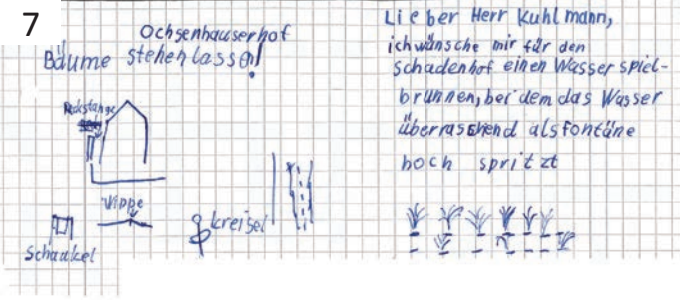 7
Ochsenhauserhof
Bäume stehen lassen!
Reckstange
Wippe
Schaukel
kreisel
Lieber Herr Kuhlmann,
ich wünsche mir für den
schadenhof einen Wasserspiel-
brunnen, bei dem das Wasser
überraschend als fontäne
hoch spritzt